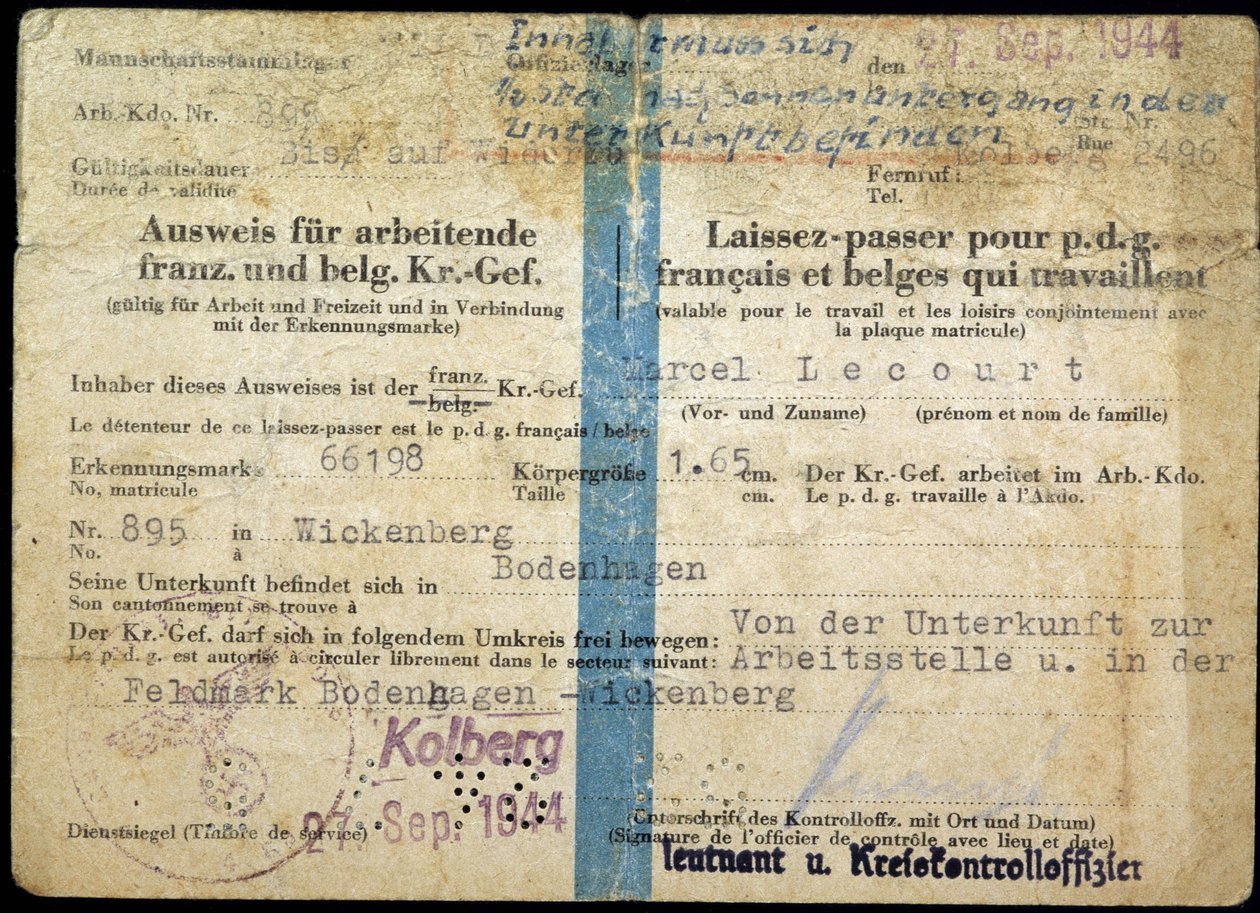 Mannschaftsstammlager II B Offizierslager den 27. Sep. 1944
Inhaber muss sich
1/2 Std nach Sonnenuntergang in der
Unterkunft befinden
Arb.-Kdo. Nr. 898 Nr.
Rue
Gültigkeitsdauer Bis auf Kolberg 2496
Durée de validité
Fernruf:
Tel.
Ausweis für arbeitende
franz. und belg. Kr.-Gef.
(gültig für Arbeit und Freizeit und in Verbindung
mit der Erkennungsmarke)
Laissez-passer pour p.d.g.
français et belges qui travaillent
(valable pour le travail et les loisirs conjointement avec
la plaque matricule)
Inhaber dieses Ausweises ist der franz./belg. Kr.-Gef. Marcel Lecourt
(Vor- und Zuname) (prénom et nom de famille)
Le détenteur de ce laissez-passer est le p. d. g. français / belge
Erkennungsmarke 66198 Körpergröße 1.65 cm. Der Kr.-Gef. arbeitet im Arb.-Kdo.
No, matricule Taille cm. Le p. d. g. travaille à l'Akdo.
Nr. 895 in Wickenberg
No. à
Seine Unterkunft befindet sich in Bodenhagen
Son cantonnement se trouve à
Der Kr.-Gef. darf sich in folgendem Umkreis frei bewegen: Von der Unterkunft zur
Le p. d. g. est autorisé à circuler librement dans le secteur suivant: Arbeitsstelle u. in der
Feldmark Bodenhagen -Wickenberg
Kolberg
27. Sep. 1944
Dienstsiegel (Timbre de service)
(Unterschrift des Kontrolloffz. mit Ort und Datum)
(Signature de l'officier de contrôle avec lieu et date)
leutnant u. Kreiskontrolloffizier